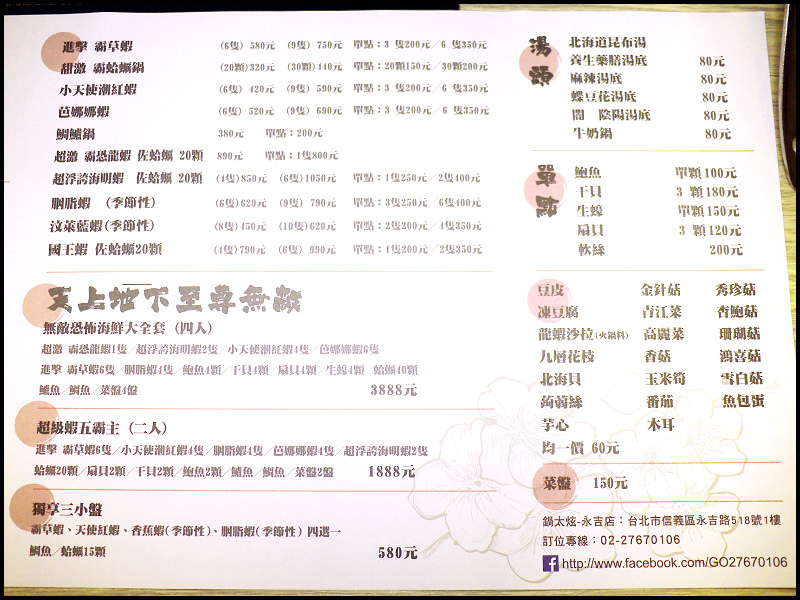 進擊 霸草蝦 (6隻) 580元 (9隻) 750元 單點：3 隻200元／6 隻350元
甜激 霸蛤蠣鍋 (20顆)320元 (30顆)440元 單點：20顆150元／30顆200元
小天使潮紅蝦 (6隻) 420元 (9隻) 590元 單點：3 隻200元／6 隻350元
芭娜娜蝦 (6隻) 520元 (9隻) 690元 單點：3 隻200元／6 隻350元
鯛鱸鍋 380元 單點：200元
超激 霸恐龍蝦 佐蛤蠣 20顆 890元 單點：1隻800元
超浮誇海明蝦 佐蛤蠣 20顆 (4隻)850元 (6隻)1050元 單點：1隻250元／2隻400元
胭脂蝦 (季節性) (6隻)620元 (9隻) 790元 單點：3隻250元／6隻400元
汶萊藍蝦(季節性) (8隻)450元 (10隻)620元 單點：2隻200元／4隻350元
國王蝦 佐蛤蠣20顆 (4隻)790元 (6隻) 990元 單點：1隻200元／2隻350元
天上地下至尊無敵
無敵恐怖海鮮大全套 (四人)
超激 霸恐龍蝦1隻／超浮誇海明蝦2隻／小天使潮紅蝦4隻／芭娜娜蝦6隻
進擊 霸草蝦6隻／胭脂蝦4隻／鮑魚4顆／干貝4顆／扇貝4顆／生蠔4顆／蛤蠣40顆
鱸魚／鯛魚／菜盤4盤 3888元
超級蝦五霸主 (二人)
進擊 霸草蝦6隻／小天使潮紅蝦4隻／胭脂蝦4隻／芭娜娜蝦4隻／超浮誇海明蝦2隻
蛤蠣20顆／扇貝2顆／干貝2顆／鮑魚2顆／鱸魚／鯛魚／菜盤2盤 1888元
獨享三小盤
霸草蝦、天使紅蝦、香蕉蝦(季節性)、胭脂蝦(季節性) 四選一
鯛魚／蛤蠣15顆 580元
湯頭
北海道昆布湯
養生藥膳湯底 80元
麻辣湯底 80元
蝶豆花湯底 80元
闇 陰陽湯底 80元
牛奶鍋 80元
單點
鮑魚 單顆100元
干貝 3 顆180元
生蠔 單顆150元
扇貝 3 顆120元
軟絲 200元
豆皮 金針菇 秀珍菇
凍豆腐 青江菜 杏鮑菇
龍蝦沙拉(火鍋料) 高麗菜 珊瑚菇
九層花枝 香菇 鴻喜菇
北海貝 玉米筍 雪白菇
蒟蒻絲 番茄 魚包蛋
芋心 木耳
均一價 60元
菜盤 150元
鍋太炫-永吉店：台北市信義區永吉路518號1樓
訂位專線：02-27670106
f http://www.facebook.com/GO27670106